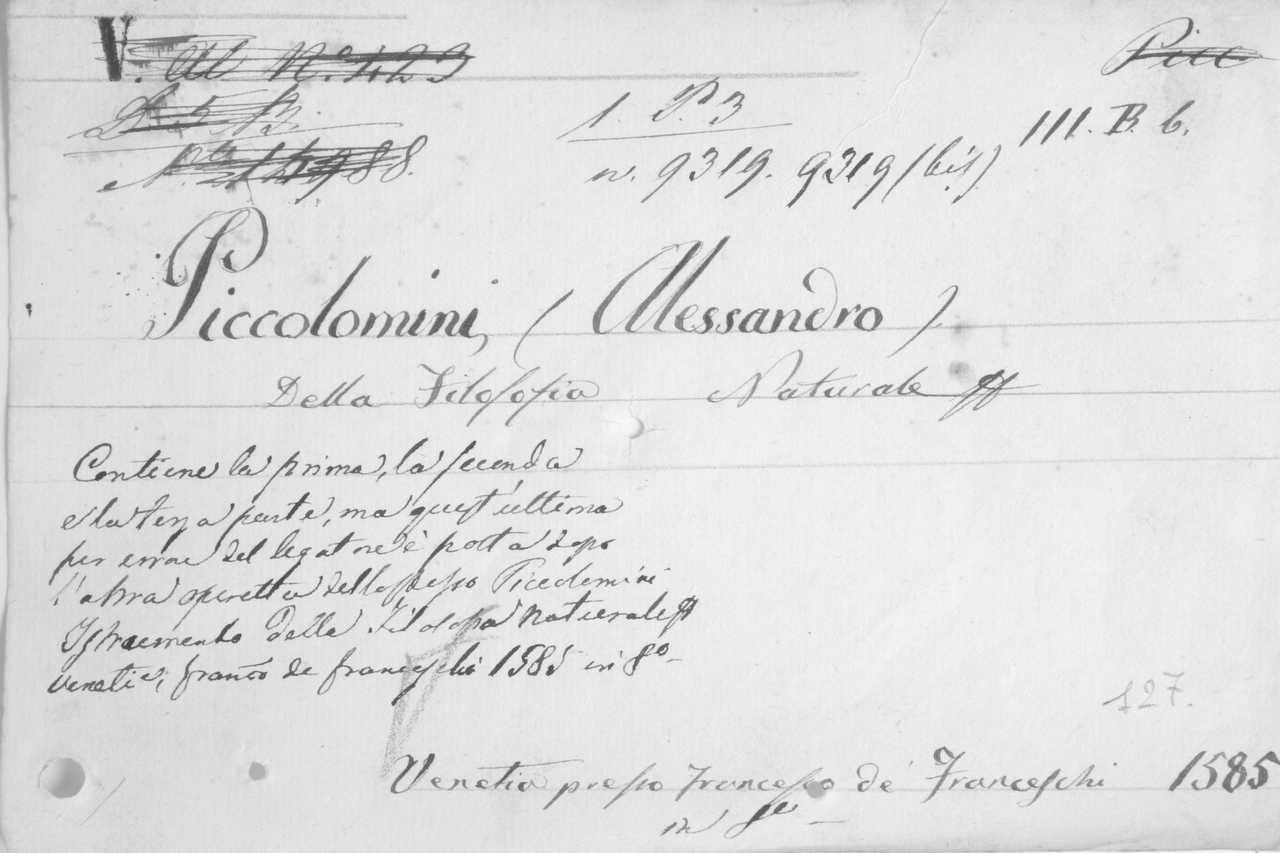 V. al N.º 423
Picc
1. P. 3
III. B. 6.
88.
n. 9319. 9319 (bis)
Piccolomini, (Alessandro)
Della Filosofia Naturale
Contiene la prima, la seconda
e la terza parte, ma quest'ultima
per errore del legatore è posta dopo
l'altra operetta dello stesso Piccolomini
Istrumento della Filosofia naturale
Venetia, Franc.º de Franceschi 1585 in 8º
127.
Venetia presso Francesco de' Franceschi 1585
in 8º